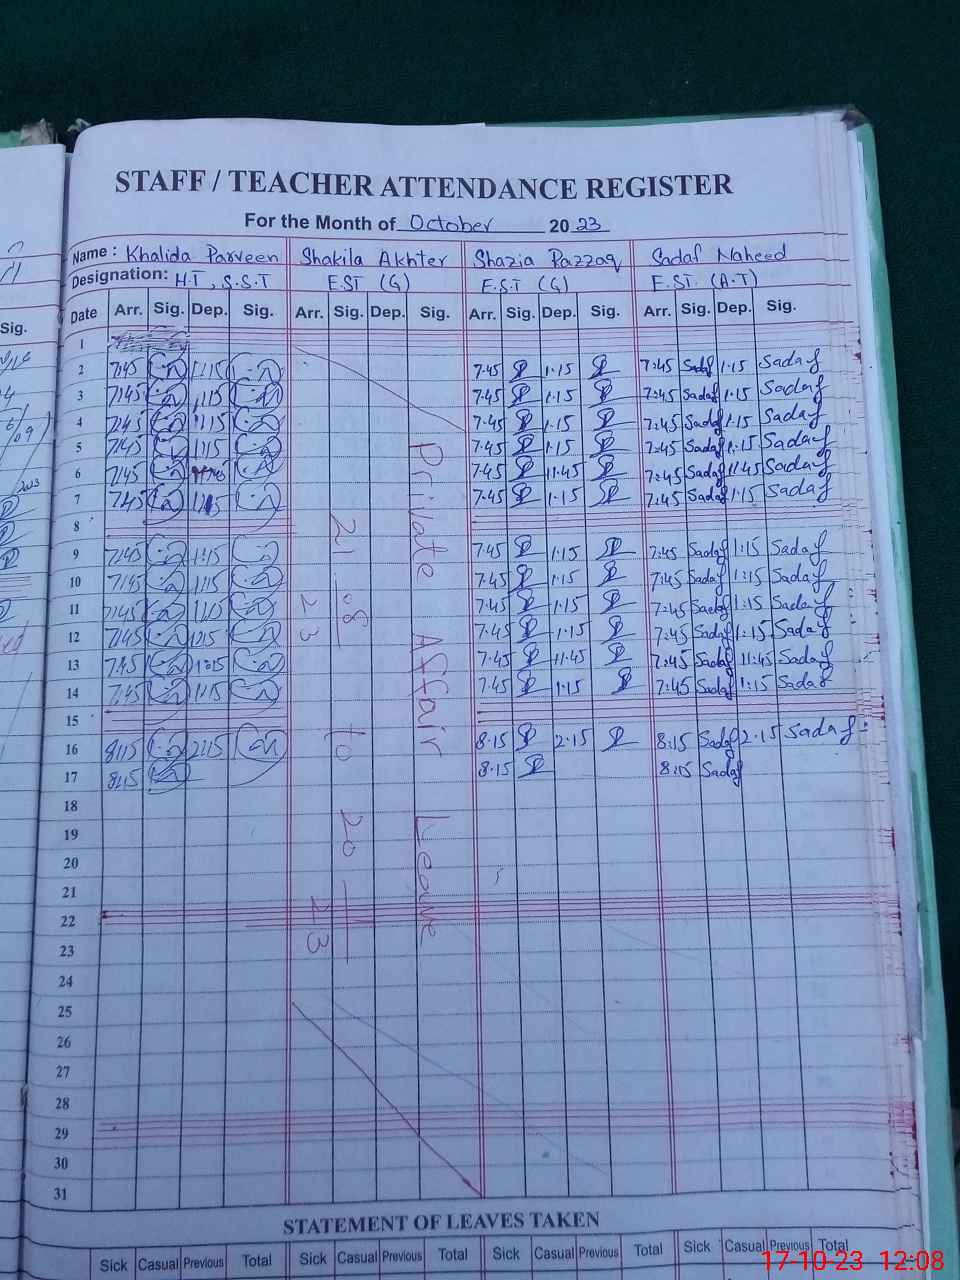 STAFF / TEACHER ATTENDANCE REGISTER
For the Month of October 20 23
Name : Khalida Parveen Shakila Akhter Shazia Razzaq Sadaf Naheed
Designation: H.T , S.S.T E.ST (G) E.S.T (G) E.S.T. (A.T)
Sig. Date Arr. Sig. Dep. Sig. Arr. Sig. Dep. Sig. Arr. Sig. Dep. Sig. Arr. Sig. Dep. Sig.
1
2 7:45 1:15 7:45 1:15 7:45 Sadaf 1:15 Sadaf
3 7:45 1:15 7:45 1:15 7:45 Sadaf 1:15 Sadaf
4 7:45 1:15 7:45 1:15 7:45 Sadaf 1:15 Sadaf
5 7:45 1:15 7:45 1:15 7:45 Sadaf 1:15 Sadaf
6 7:45 7:45 11:45 7:45 Sadaf 11:45 Sadaf
7 7:45 7:45 1:15 7:45 Sadaf 1:15 Sadaf
8
9 7:45 1:15 7:45 1:15 7:45 Sadaf 1:15 Sadaf
10 7:45 1:15 7:45 1:15 7:45 Sadaf 1:15 Sadaf
11 7:45 7:45 1:15 7:45 Sadaf 1:15 Sadaf
12 7:45 1:15 7:45 1:15 7:45 Sadaf 1:15 Sadaf
13 7:45 7:45 11:45 7:45 Sadaf 11:45 Sadaf
14 7:45 1:15 7:45 1:15 7:45 Sadaf 1:15 Sadaf
15
16 8:15 2:15 8:15 2:15 8:15 Sadaf 2:15 Sadaf
17 8:15 8:15 8:15 Sadaf
18
19
20
21
22
23
24
25
26
27
28
29
30
31
Private Affair Leave
21-08-23 to 20-11-23
STATEMENT OF LEAVES TAKEN
Sick Casual Previous Total Sick Casual Previous Total Sick Casual Previous Total Sick Casual Previous Total
17-10-23 12:08